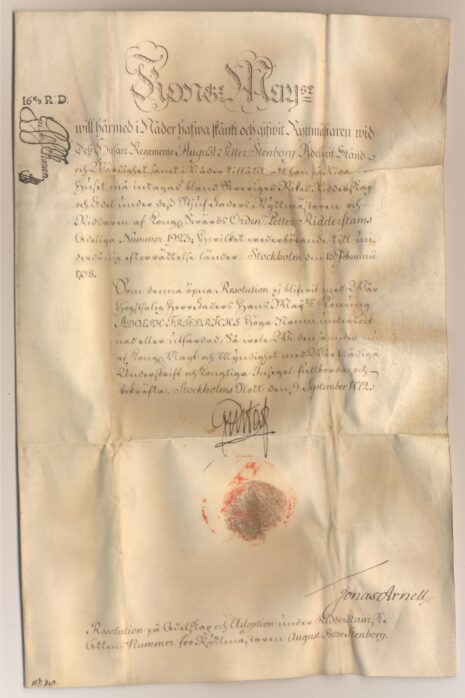 Kongl. Mayst
16⅔ R. D.
will härmed i Nåder hafwa skänkt och gifwit Ryttmästaren wid
Deß Husare Regemente August Petter Stenborg Adeligit Stånd
och Wärdighet, samt i Nåder tillåtit, att han på Ridda-
Huset må intagas bland Sweriges Rikes Ridderskap
och Adel under deß Stjuf Faders Ryttmästaren och
Riddaren af Kongl. Swärds Orden Petter Ridderstams
Adeliga Nummer 1923; Hwilket wederbörande till un-
derdånig efterrättelse länder. Stockholm den Februarii
1758.
Som denna öpna Resolution ej blifwit med Wår
Högstsalig Herr Faders Hans Mayts Konung
ADOLPH FRIEDRICHS Höga Namn underteck-
nad eller utfärdad, Så wele Wi den
af Kongl. Magt och Myndighet med Wår nådiga
Underskrift och Kongliga Insegel fullborda och
bekräfta. Stockholms Slott den 9 September 1772.
Gustaf
Jonas Arnell
Resolution på Adelskap och Adoption under Ridderstamske
Ättens Nummer för Ryttmästaren August Petter Stenborg.